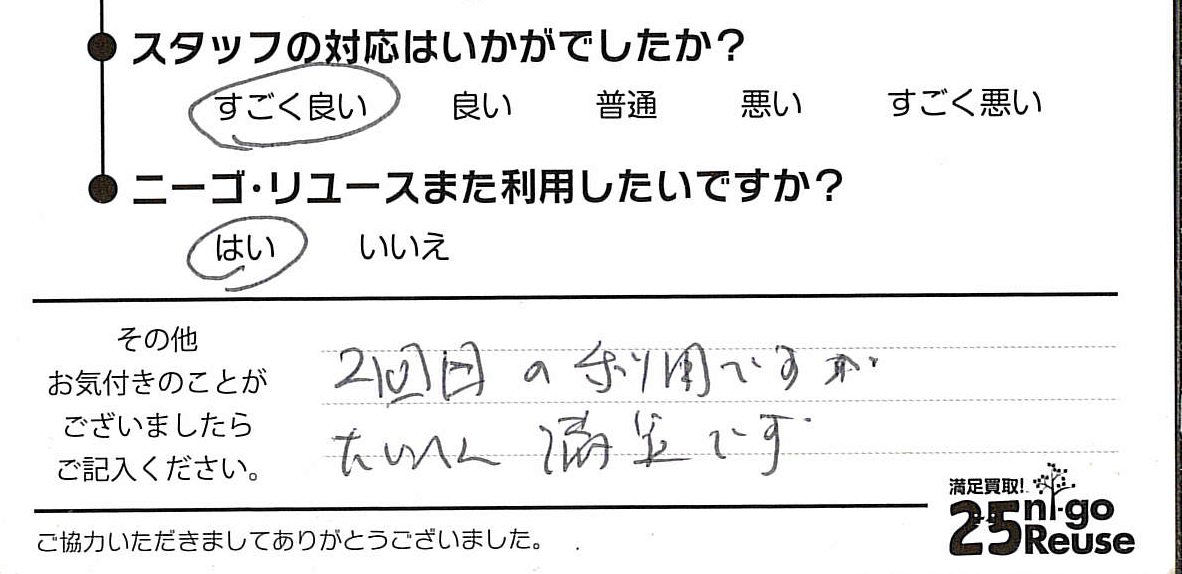 スタッフの対応はいかがでしたか？
すごく良い 良い 普通 悪い すごく悪い
ニーゴ・リユースまた利用したいですか？
はい いいえ
その他
お気付きのことが
ございましたら
ご記入ください。
2回目の利用ですが
たいへん満足です
満足買取!
25 ni-go
Reuse
ご協力いただきましてありがとうございました。